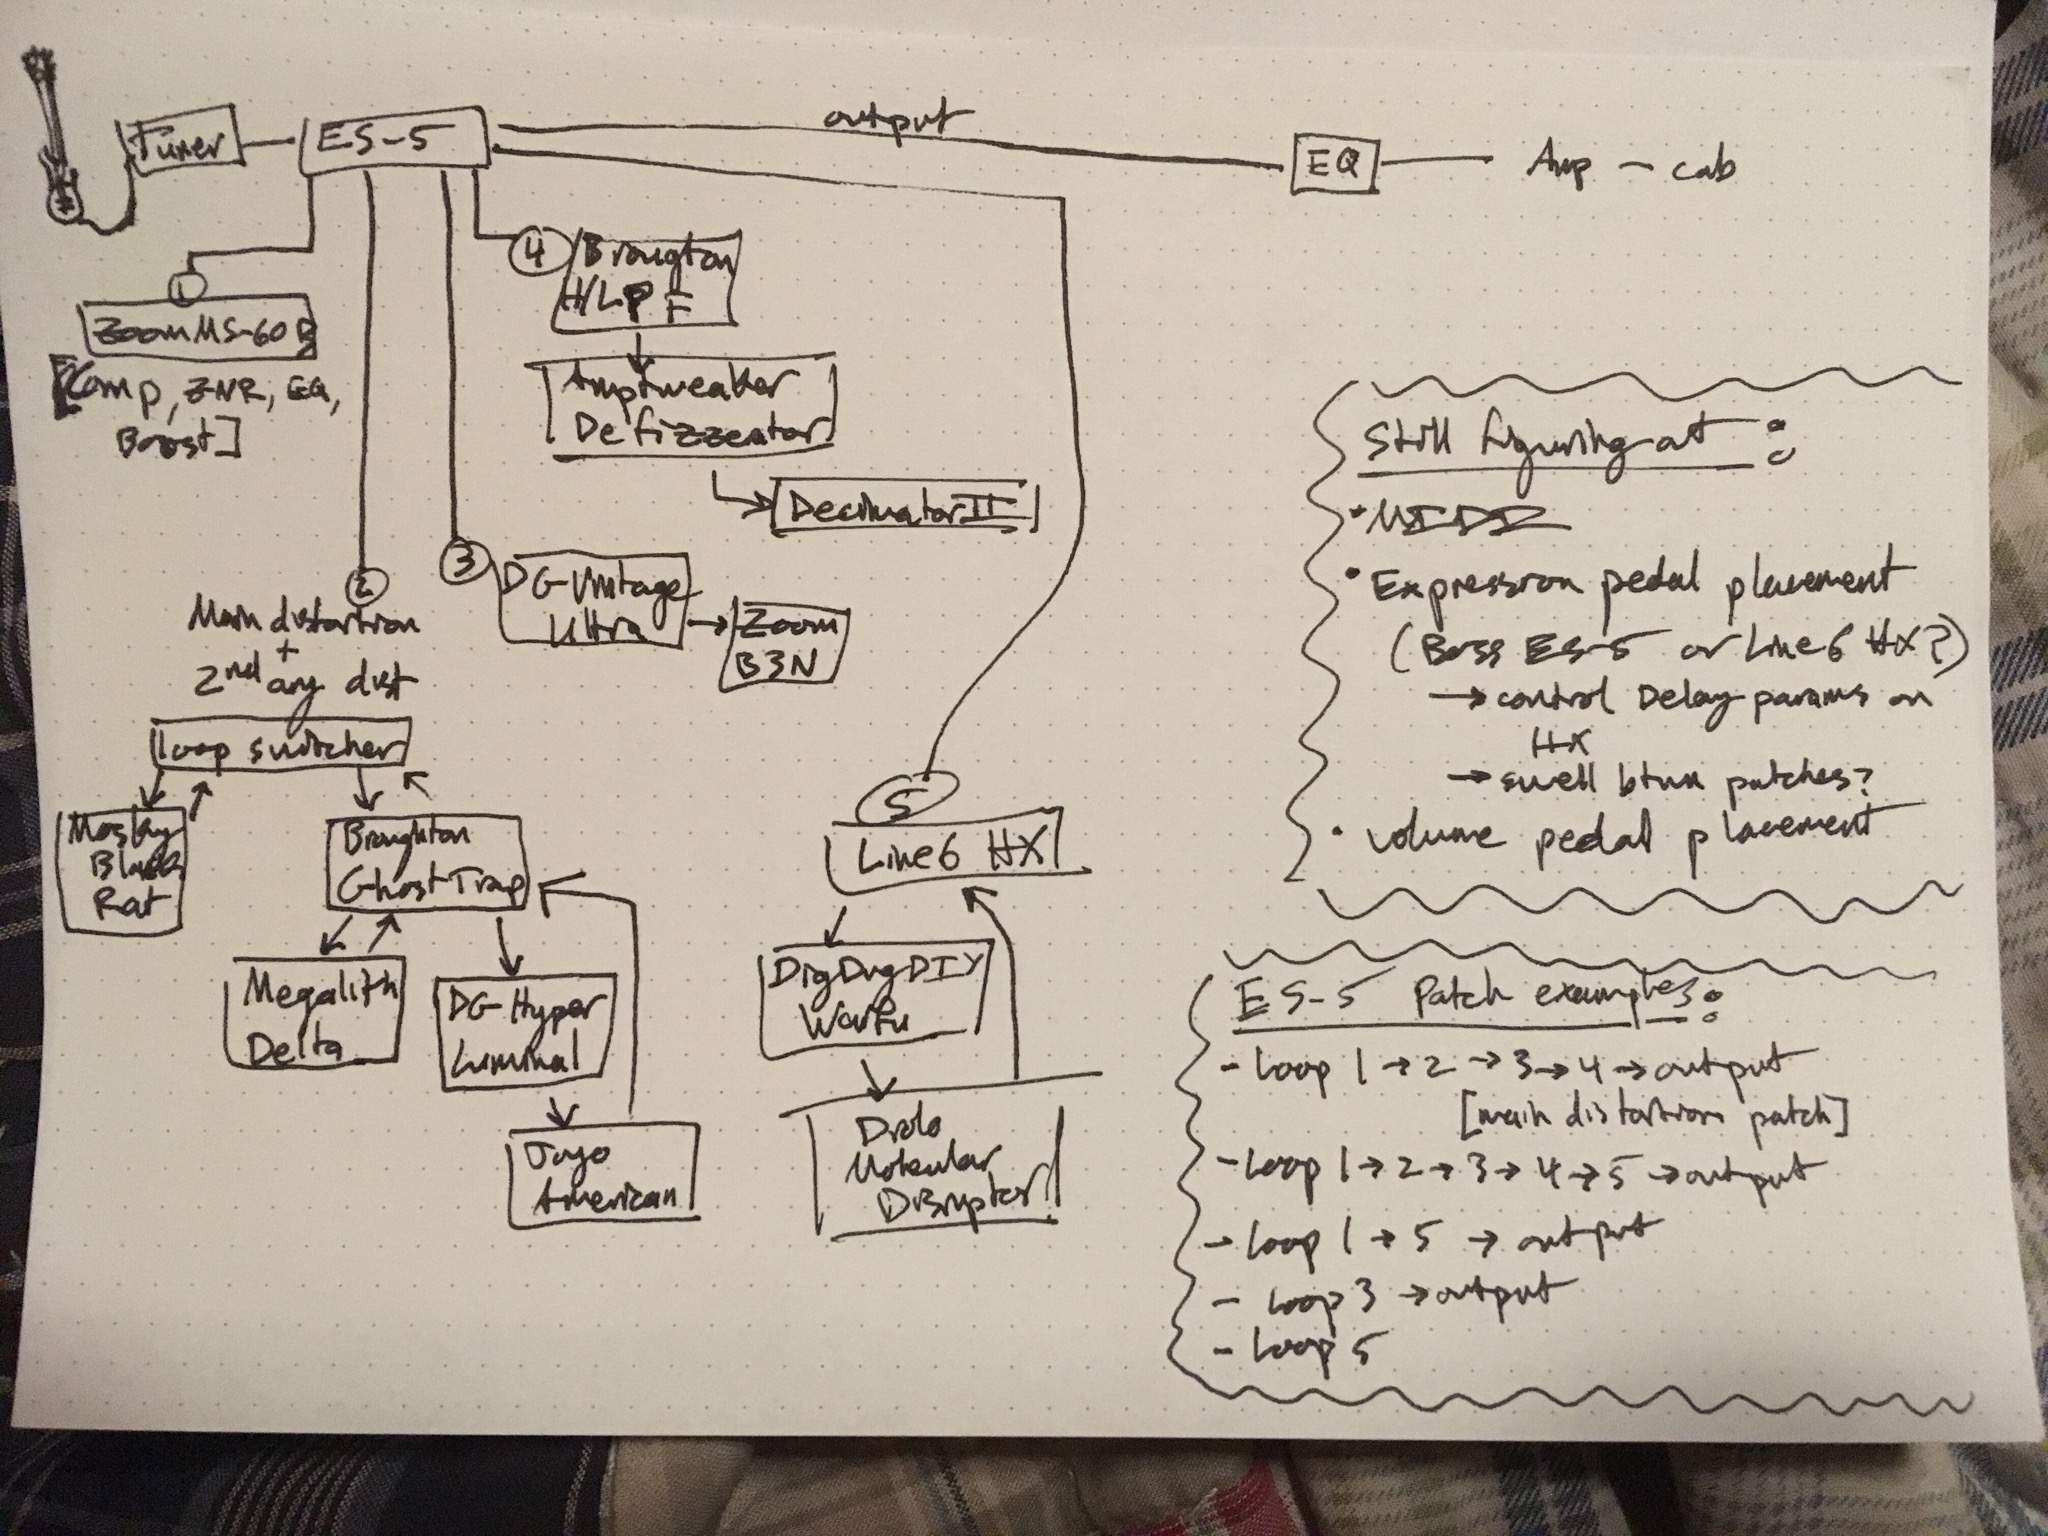 Tuner
ES-5
output
EQ
Amp - cab
1
Zoom MS-60B
[Comp, ZNR, EQ,
Boost]
4
Brougton
H/LPF
Amptweaker
Defizzerator
Decimator II
3
DG-Vintage
Ultra
Zoom
B3N
2
Main distortion
+
2nd ary dist
loop switcher
Mosky
Black
Rat
Broughton
Ghost Trap
Megalith
Delta
DG-Hyper
Luminal
Joyo
American
5
Line6 HX
DigDugDIY
Drolo
Molecular
Disruptor
Still figuring out:
• MIDI
• Expression pedal placement
(Boss ES-5 or Line6 HX?)
→ control Delay params on
HX
→ swell btwn patches?
• volume pedal placement
ES-5 Patch examples:
- Loop 1 → 2 → 3 → 4 → output
[main distortion patch]
- Loop 1 → 2 → 3 → 4 → 5 → output
- Loop 1 → 5 → output
- Loop 3 → output
- Loop 5